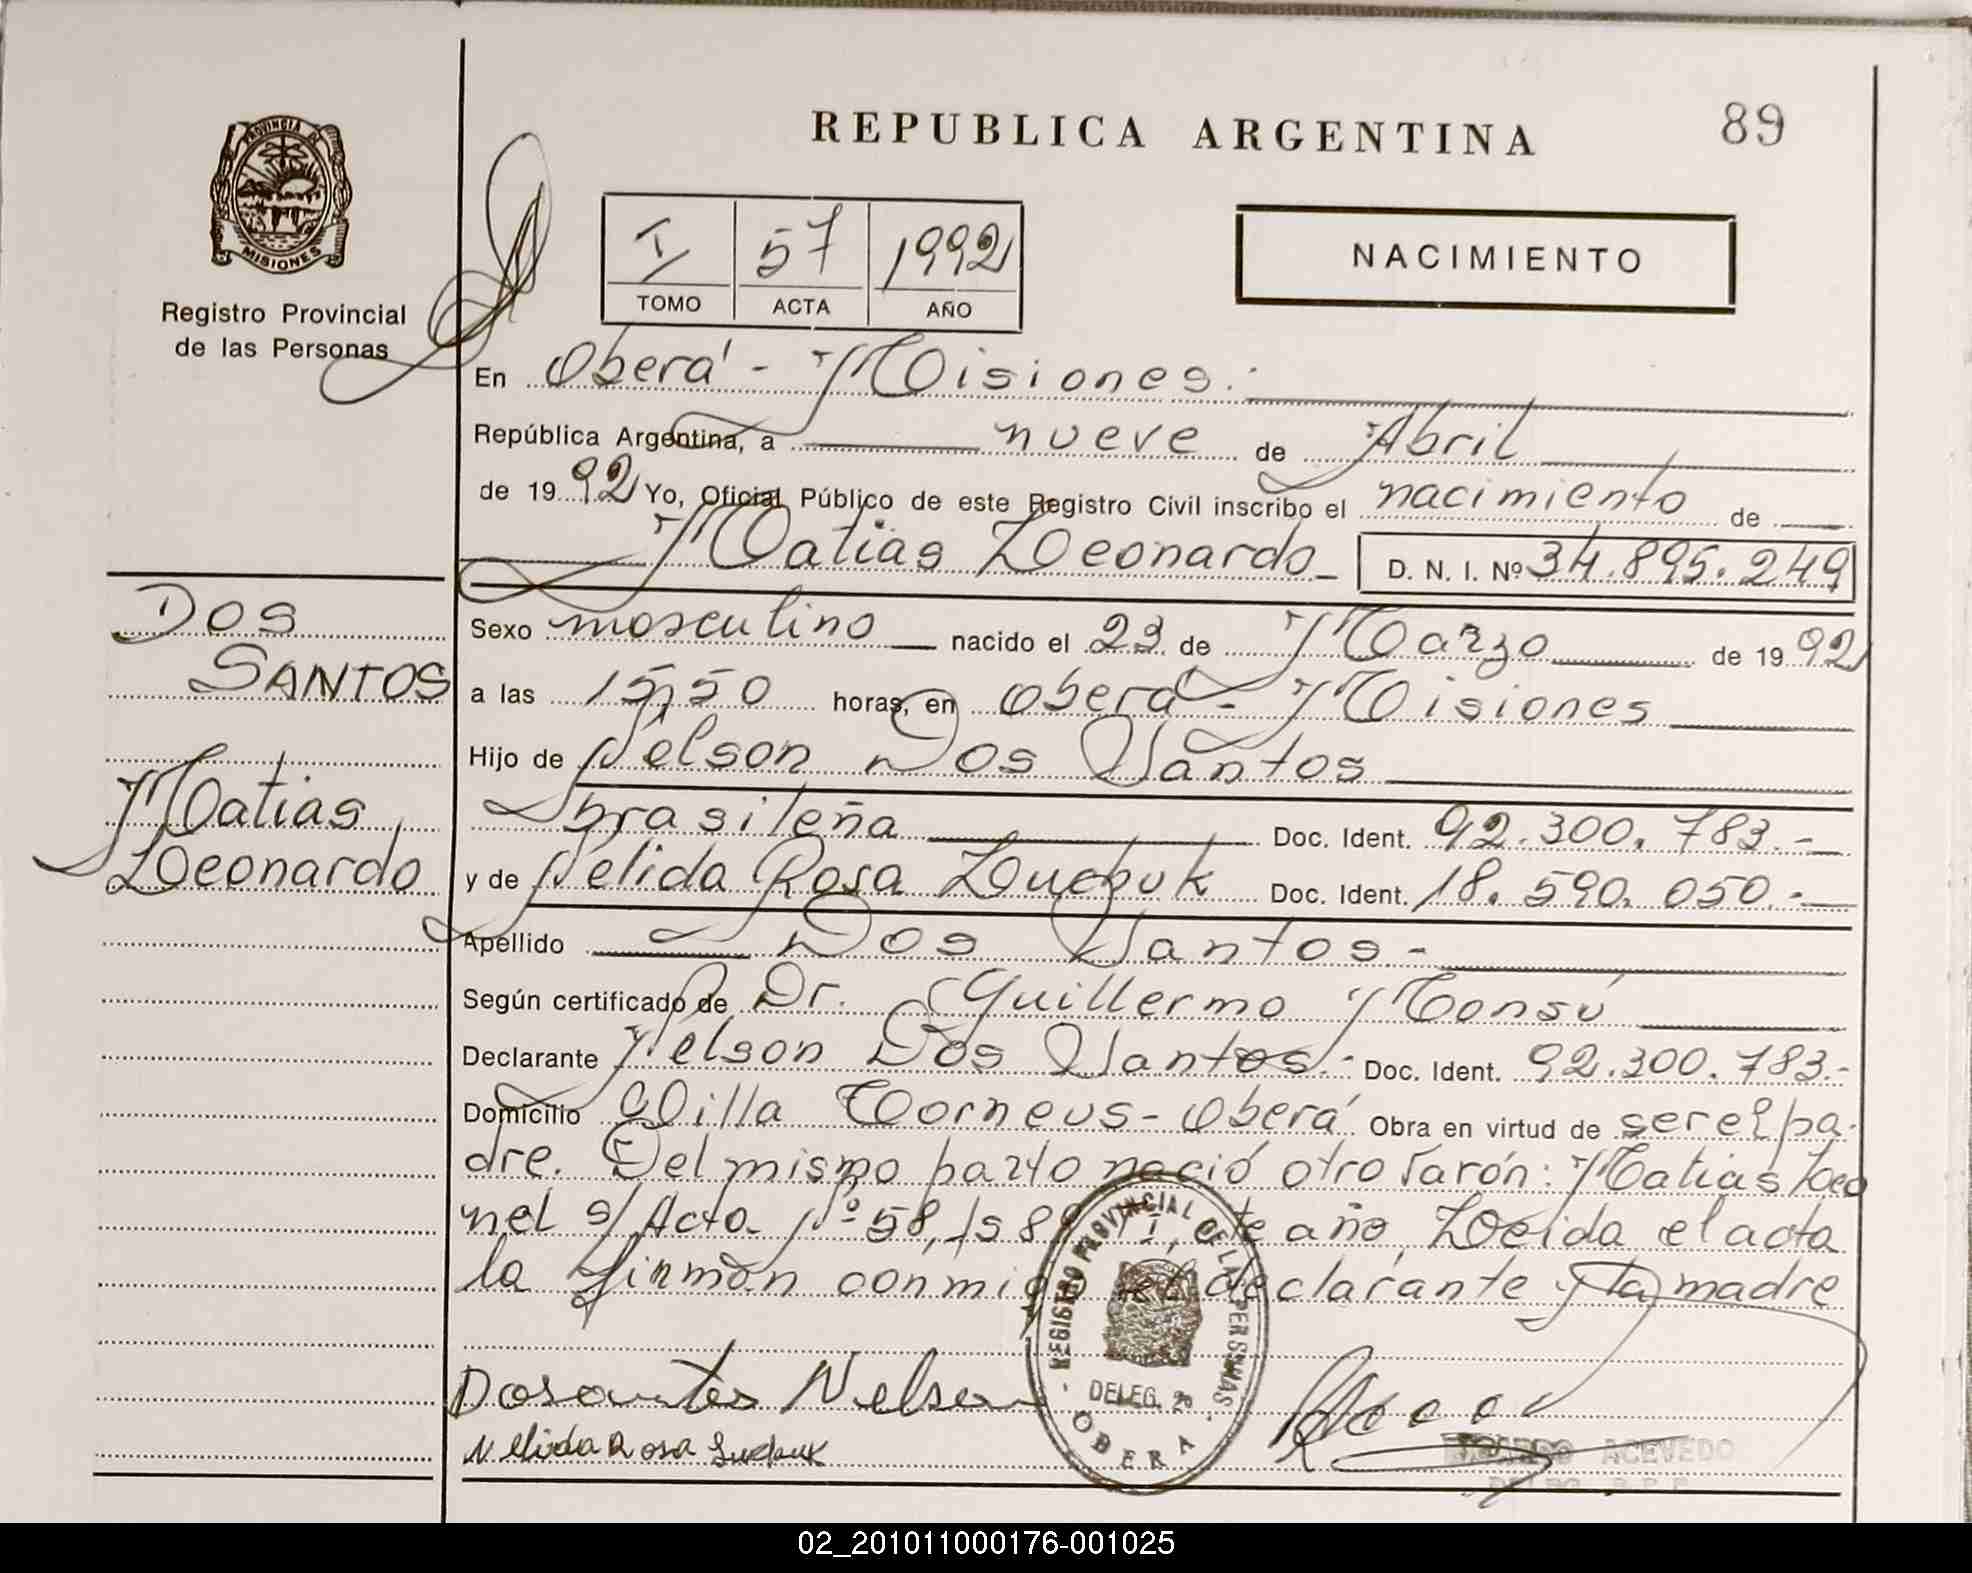 REPUBLICA ARGENTINA
89
PROVINCIA DE
MISIONES
Registro Provincial
de las Personas
I
57
1992
TOMO
ACTA
AÑO
NACIMIENTO
En Oberá - Misiones.-
República Argentina, a nueve de Abril
de 1992 Yo, Oficial Público de este Registro Civil inscribo el nacimiento de
Matias Leonardo- D. N. I. Nº 34.895.249
DOS
SANTOS
Matias
Leonardo
Sexo masculino nacido el 23 de Marzo de 1992
a las 15,50 horas, en Oberá - Misiones
Hijo de Nelson Dos Santos
brasileña Doc. Ident. 92.300.783.-
y de Nelida Rosa Luchuk Doc. Ident. 18.590.050.-
Apellido Dos Santos-
Según certificado de Dr. Guillermo Monsú
Declarante Nelson Dos Santos.- Doc. Ident. 92.300.783.-
Domicilio Villa Torneus-Oberá Obra en virtud de ser el pa-
dre. Del mismo parto nació otro varón: Matias Leo
nel s/Acta Nº 58, Fs 89 Tº I, ete año, Leida el acta
la firman conmigo el declarante y la madre
Dosantos Nelson
Nelida Rosa Luchuk
REGISTRO PROVINCIAL DE LAS PERSONAS
DELEG. 20
OBERA
RICARDO ACEVEDO
02_201011000176-001025